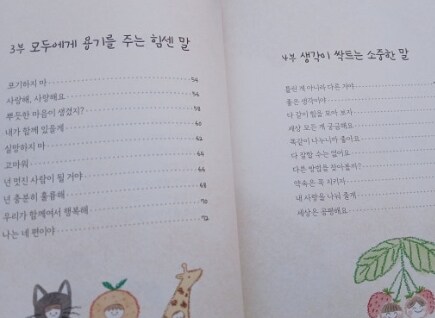 3부 모두에게 용기를 주는 힘센 말
포기하지 마 54
사랑해, 사랑해요 56
뿌듯한 마음이 생겼지? 58
내가 함께 있을게 60
실망하지 마 62
고마워 64
넌 멋진 사람이 될 거야 66
넌 충분히 훌륭해 68
우리가 함께여서 행복해 70
나는 네 편이야 72
4부 생각이 싹트는 소중한 말
틀린 게 아니라 다른 거야
좋은 생각이야
다 같이 힘을 모아 보자
세상 모든 게 궁금해요
똑같이 나누니까 좋아요
다 잘할 수는 없어요
다른 방법을 찾아볼까?
약속은 꼭 지키자
내 사랑을 나눠 줄게
세상은 공평해요